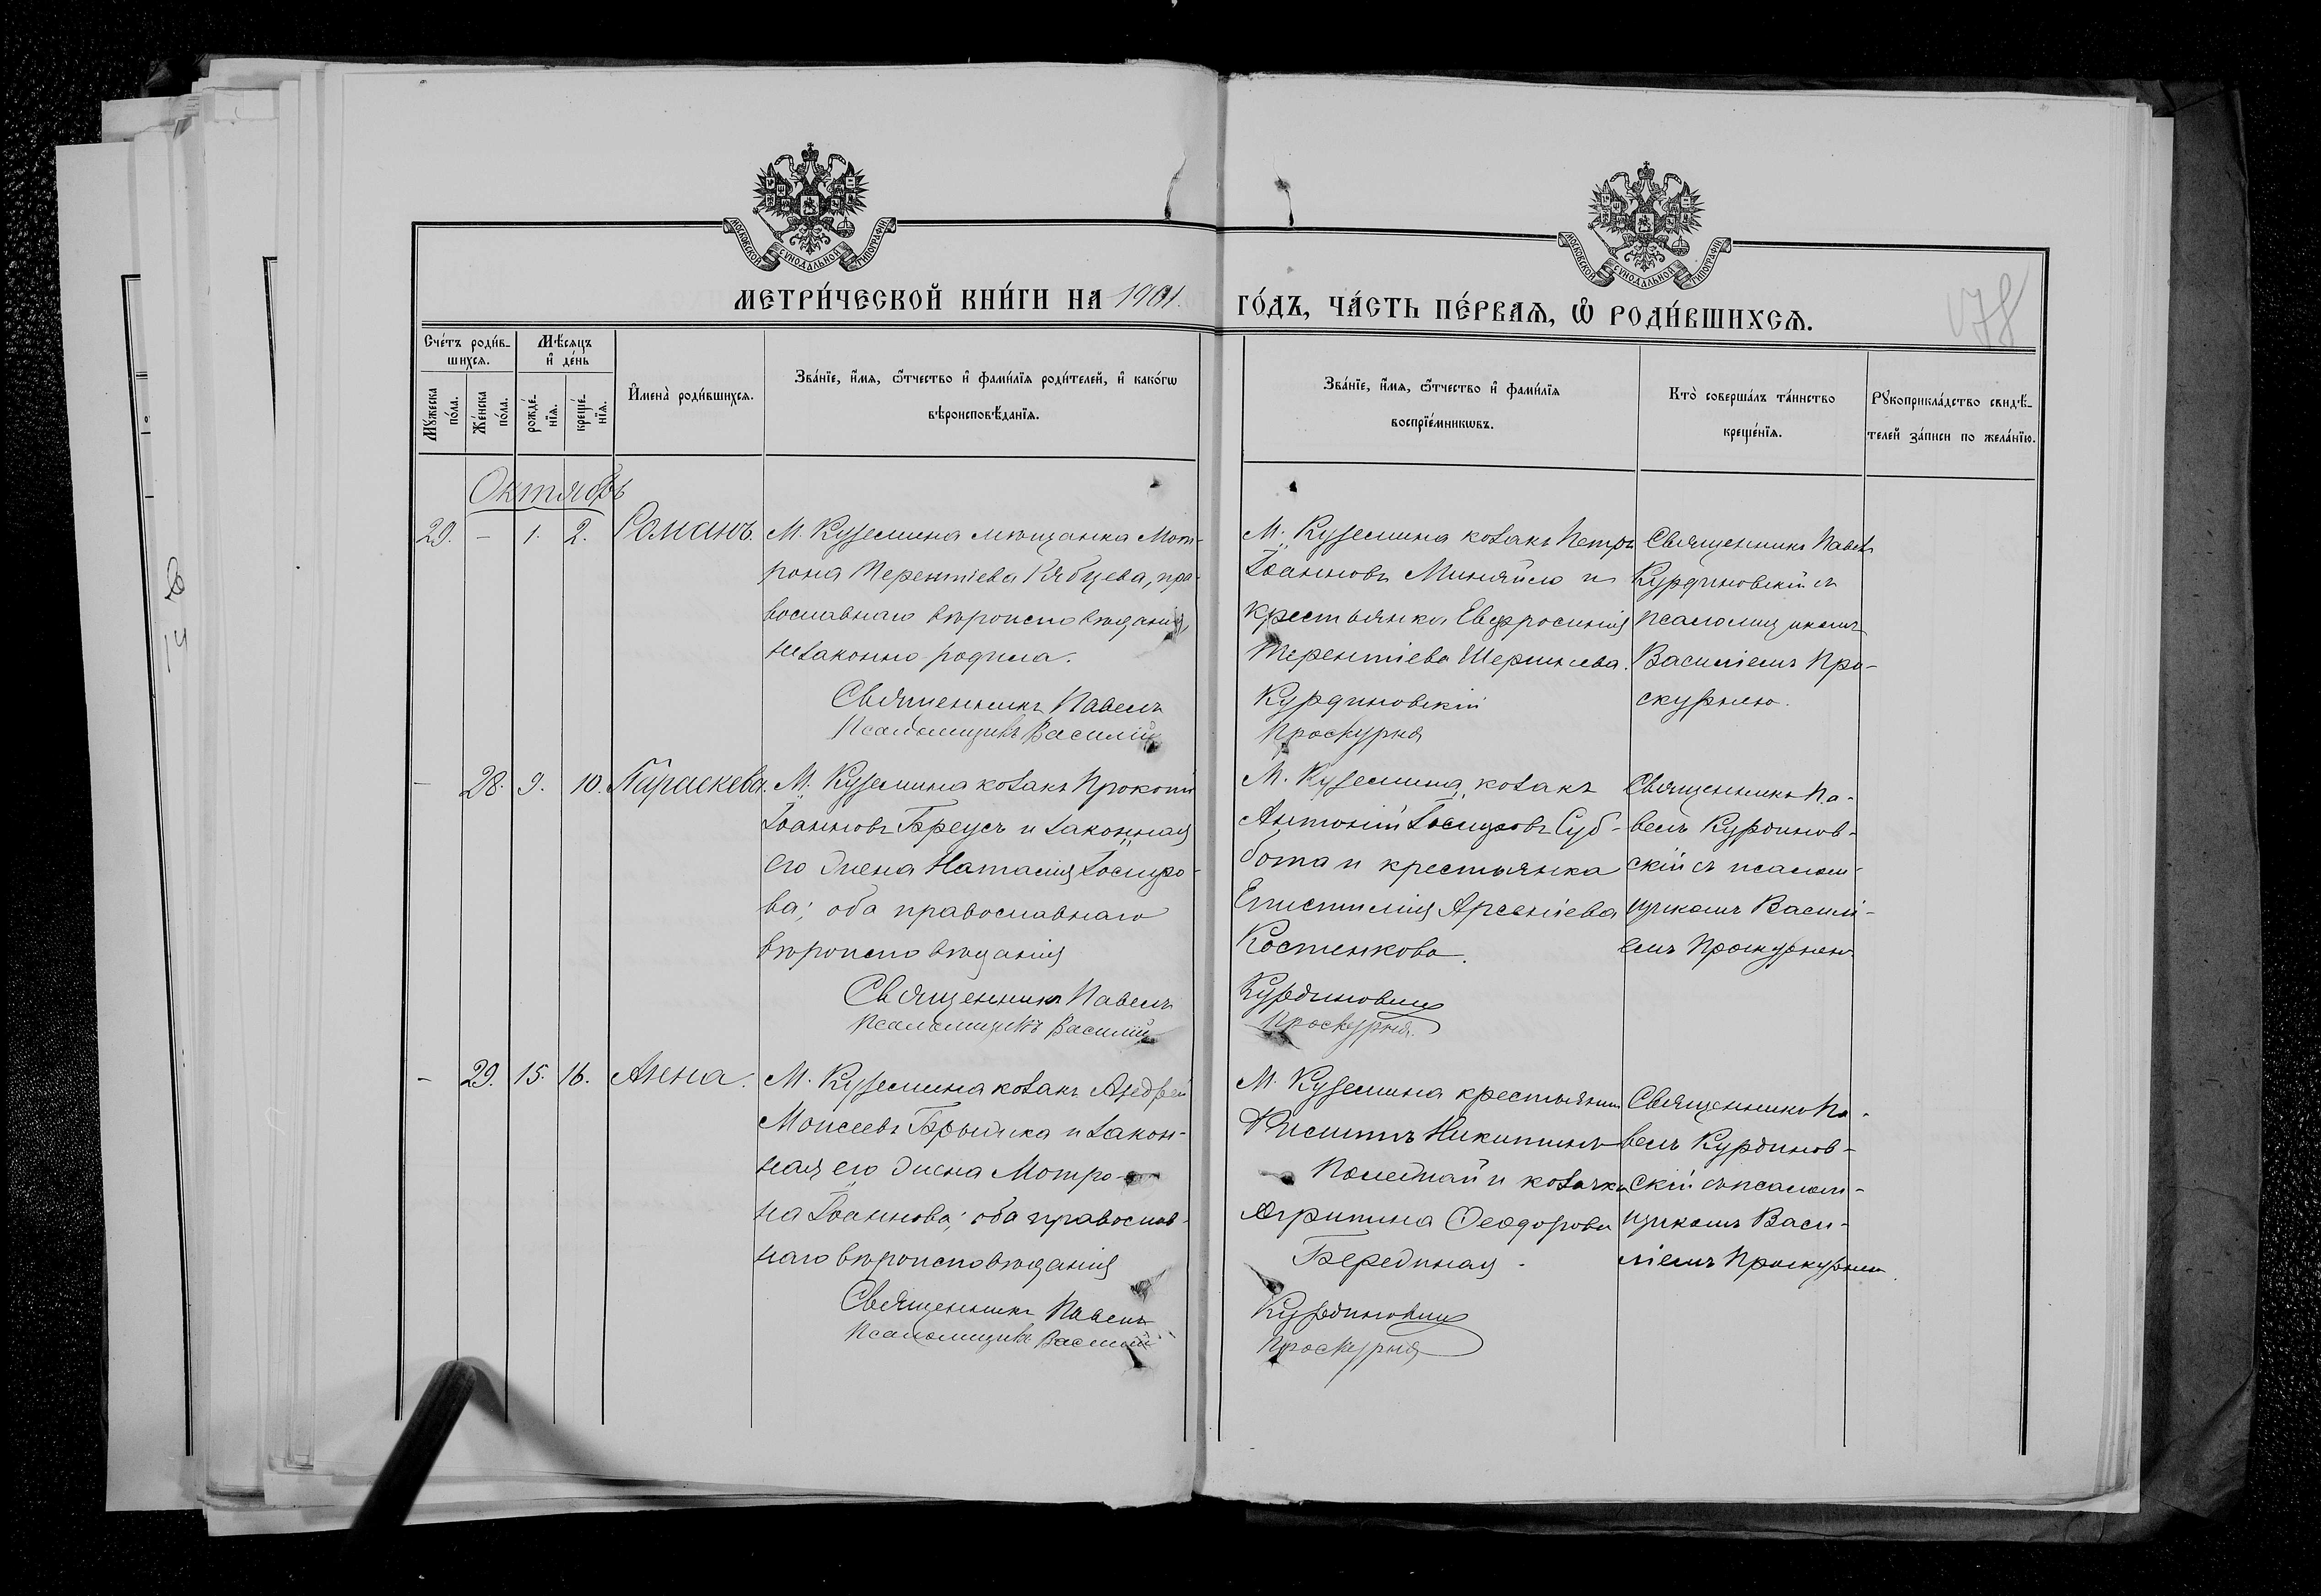 МОСКОВСКОЙ СѴНОДАЛЬНОЙ ТИПОГРАФІИ
МОСКОВСКОЙ СѴНОДАЛЬНОЙ ТИПОГРАФІИ
МЕТРИ́ЧЕСКОЙ КНИ́ГИ НА 1901.
ГО́ДЪ, ЧА́СТЬ ПЕ́РВАѦ, Ѡ РОДИ́ВШИХСѦ.
178
Сче́тъ роди́в-
шихсѧ.
Мѣ́сѧцъ
и҆ де́нь
Мꙋ́жеска по́ла.
Же́нска по́ла.
рожде́-нїѧ.
креще́-нїѧ.
И҆мена̀ роди́вшихсѧ.
Зва́нїе, и҆́мѧ, ѻ҆́тчество и҆ фами́лїѧ роди́телей, и҆ како́гѡ
вѣроисповѣ́данїѧ.
Зва́нїе, и҆́мѧ, ѻ҆́тчество и҆ фами́лїѧ
воспрїе́мникѡвъ.
Кто̀ соверша́лъ та́инство
креще́нїѧ.
Рꙋкоприкла́дство свидѣ́-
телей за́писи по жела́нїю.
Октябрь
29. - 1. 2. Романъ.
М. Куземина мѣщанка Мот-
рона Терентіева Рябцева, пра-
вославнаго вѣроисповѣданія,
незаконно родила.
Священникъ Павелъ
Псаломщикъ Василій
М. Куземина козакъ Петръ
Іоанновъ Миняйло и
крестьянка Евфросинія
Терентіева
Курдиновскій
Проскурня
Священникъ Павелъ
Курдиновскій съ
псаломщикомъ
Василіемъ Про-
скурнею.
- 28. 9. 10. Параскева.
М. Куземина козакъ Прокопій
Іоанновъ Бреусъ и законная
его жена Наталія Іосифо-
ва; оба православнаго
вѣроисповѣданія
Священникъ Павелъ
Псаломщикъ Василій
М. Куземина, козакъ
Антоній Іосифовъ Суб-
бота и крестьянка
Епистимія Арсеніева
Костенкова.
Курдиновскій
Проскурня.
Священникъ Па-
велъ Курдинов-
скій съ псалом-
щикомъ Василі-
емъ Проскурнею
- 29. 15. 16. Анна.
М. Куземина козакъ Андрей
Моисеевъ и закон-
ная его жена Мотро-
на Іоаннова; оба православ-
наго вѣроисповѣданія
Священникъ Павелъ
Псаломщикъ Василій
М. Куземина крестьянинъ
Филиппъ Никитинъ
и козачка
Агрипина Феодорова
Бередникая.
Курдиновскій
Проскурня
Священникъ Па-
велъ Курдинов-
скій съ псалом-
щикомъ Васи-
ліемъ Проскурнею.